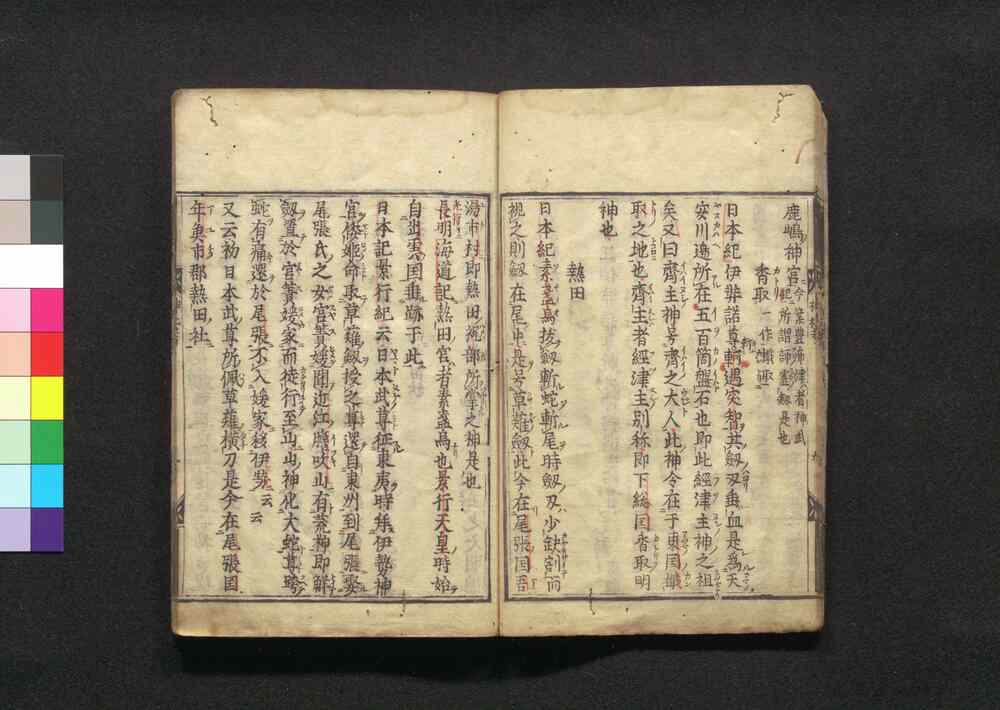 鹿嶋神宮 今案豊布都者神武
紀所謂師霊劔是也
香取 一作檝取
日本紀伊弉諾尊斬軻遇突智其劔刃垂血是為天
安川邊所在五百箇盤石也即此經津主神之祖
矣又曰齊主神号齊之大人此神今在于東国檝
取之地也齊主者經津主別称即下総国香取明
神也
熱田
日本紀素盞烏拔劔斬蛇斬尾時劔刃少缺割而
視之則劔在尾中是号草薙劔此今在尾張国吾
湯市村即熱田祝部所掌之神是也
長明海道記熱田宮者素盞烏也景行天皇時始
自出雲国垂跡于此
日本記景行紀云日本武尊征東夷時拜伊勢神
宮倭姫命取草薙劔授之尊還自東州到尾張娶
尾張氏之女宮簀媛聞近江膽吹山有荒神即解
劔置於宮簀媛家而徒行至山山神化大蛇尊踏
蛇有痛還於尾張不入媛家移伊勢云云
又云初日本武尊所佩草薙横刀是今在尾張国
年魚市郡熱田社